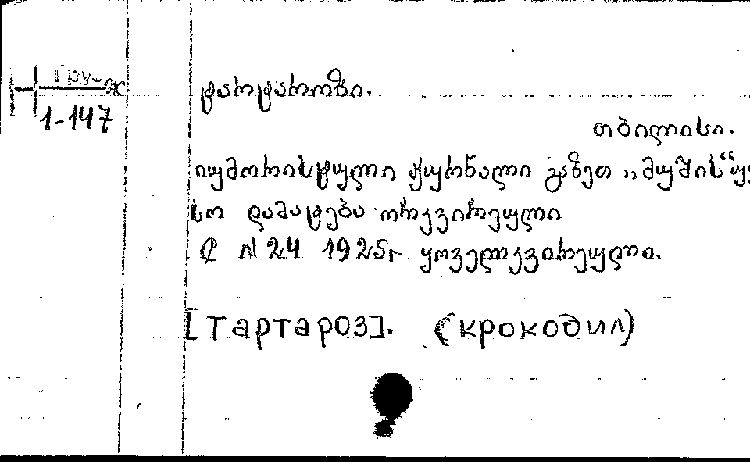 Гру-ж
1-147
ტარტაროზი.
თბილისი.
იუმორისტული ჟურნალი გაზეთ „მუშის“
სო დამატება ორკვირეული
С №24 1925г ყოველკვირეული.
[Тартароз]. (крокодил)